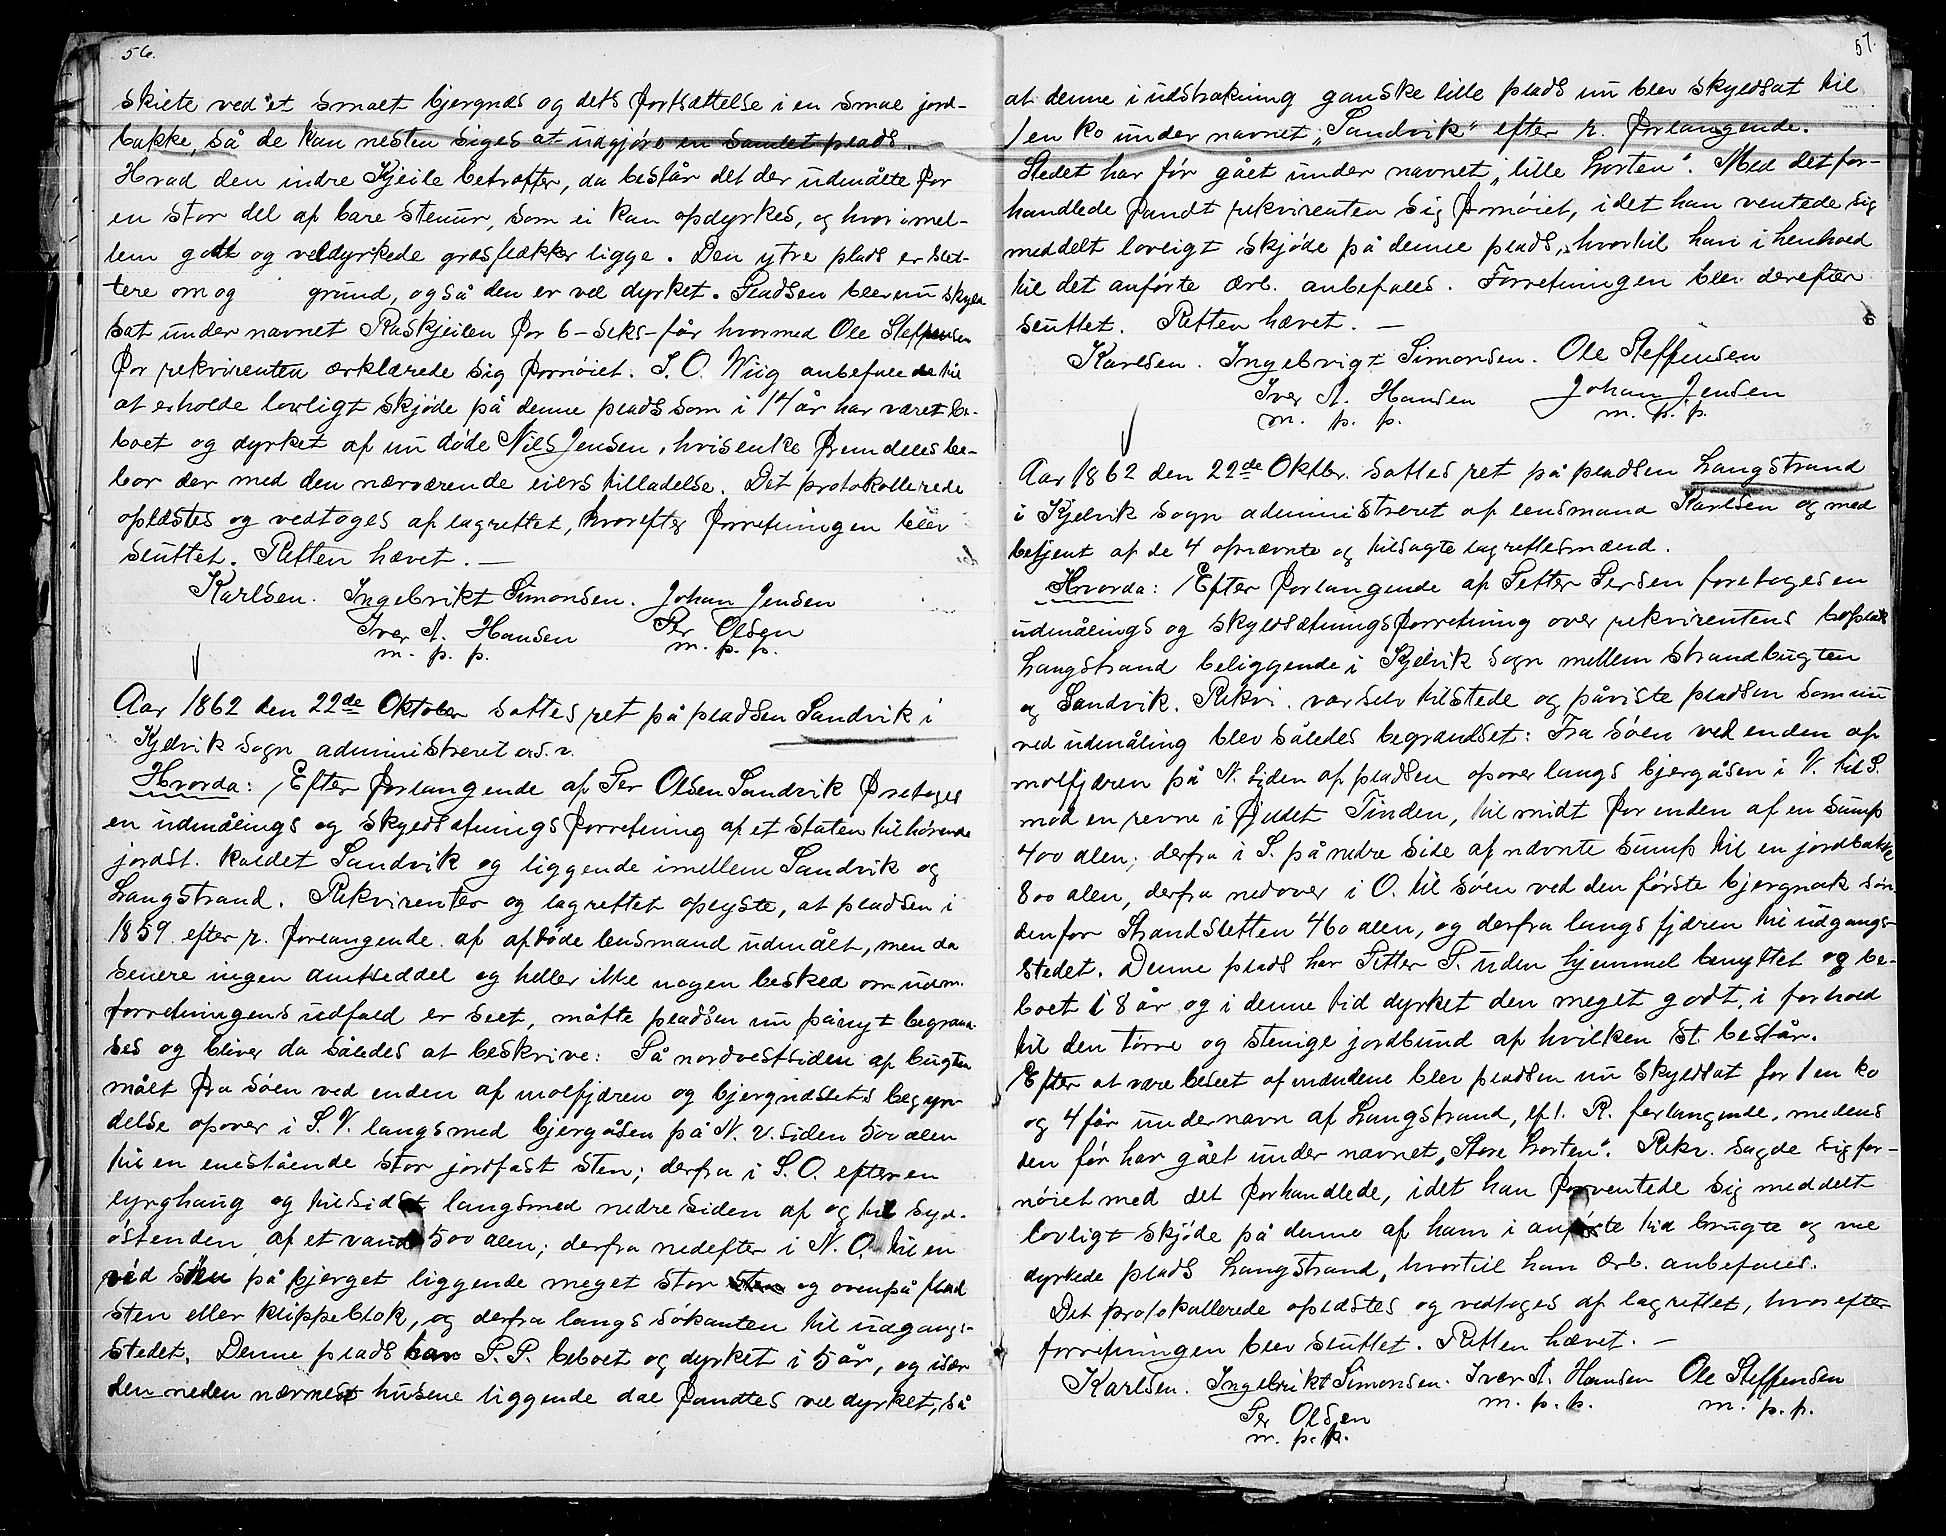 56.
skilte ved et smalt bjergnæs og dets fortsættelse i en smal jord-
bakke, så de kan nesten siges at udgjøre en samlet plads.
Hvad den indre Kjeile betræffer, da består det der udmålte for
en stor del af bare stenur, som ei kan opdyrkes, og hvor imel-
lem godt og veldyrkede græsflækker ligge. Den ytre plads er slet-
tere om og grund, også den er vel dyrket. Pladsen blev nu skyld
sat under navnet Raskjeilen for 6 - seks - får hvormed Ole Steffensen
for rekvirenten ærklærede sig fornøiet. S. O. Wiig anbefalede til
at erholde lovligt skjøde på denne plads som i 14 år har været be-
boet og dyrket af nu døde Nils Jensen, hvis enke fremdeles be-
bor der med den nærværende eiers tilladelse. Det protokollerede
oplæstes og vedtoges af lagrettet, hvorefter forretningen blev
sluttet. Retten hævet. —
Karlsen. Ingebrikt Simonsen. Johan Jensen
Iver A. Hansen Per Olsen
m. p. p. m. p. p.
Aar 1862 den 22de Oktober sattes ret på pladsen Sandvik i
Kjelvik sogn administreret o.s.v.
Hvorda: Efter forlangende af Per Olsen Sandvik foretoges
en udmålings og skyldsætnings forretning af et staten tilhørende
jordst. kaldet Sandvik og liggende imellem Sandvik og
Langstrand. Rekvirenten og lagrettet oplyste, at pladsen i
1859 efter r. forlangende af afdøde lensmand udmålt, men da
senere ingen amtseddel og heller ikke nogen besked om udm.
forretningens udfald er seet, måtte pladsen nu pånyt begræn-
ses og bliver da således at beskrive: På nordvestsiden af bugten
målt fra søen ved enden af molfjæren og bjergnæssets begyn-
delse opover i S.V. langsmed bjergåsen på N.V. siden 500 alen
til en enestående stor jordfast sten; derfra i S.O. efter en
lynghaug og tilsidst langsmed nedre siden af og til syd-
østenden af et vand 500 alen; derfra nedefter i N.O. til en
ved søen på bjerget liggende meget stor sten og ovenpå flad
sten eller klippeblok, og derfra langs søkanten til udgangs-
stedet. Denne plads har P. P. beboet og dyrket i 5 år, og især
den neden nærmest husene liggende dal fandtes vel dyrket, så
57.
at denne i udstrækning ganske lille plads nu blev skyldsat til
1 en ko under navnet „Sandvik“ efter r. forlangende.
Stedet har før gået under navnet „lille Lorten“. Med det for-
handlede fandt rekvirenten sig fornøiet, idet han ventede sig
meddelt lovligt skjøde på denne plads, hvortil han i henhold
til det anførte ærb. anbefales. Forretningen blev derefter
sluttet. Retten hævet. —
Karlsen. Ingebrigt Simonsen. Ole Steffensen
Iver A. Hansen Johan Jensen
m. p. p. m. p. p.
Aar 1862 den 22de Oktbr. sattes ret på pladsen Langstrand
i Kjelvik sogn administreret af lensmand Karlsen og med
betjent af de 4 opnævnte og tilsagte lagrettesmænd.
Hvorda: Efter forlangende af Petter Persen foretoges en
udmålings og skyldsætningsforretning over rekvirentens boplads
Langstrand beliggende i Kjelvik sogn mellem Strandbugten
og Sandvik. Rekvi. var selv tilstede og påviste pladsen som nu
ved udmåling blev således begrændset: Fra søen ved enden af
molfjæren på N. siden af pladsen opover langs bjergåsen i V. til S.
mod en revne i fjeldet Tinden, til midt for enden af en sump
400 alen; derfra i S. på nedre side af nævnte sump til en jordbakke
800 alen, derfra nedover i O. til søen ved den første bjergnak søn-
denfor Strandsletten 460 alen, og derfra langs fjæren til udgangs-
stedet. Denne plads har Petter P. uden hjemmel benyttet og be-
boet i 8 år og i denne tid dyrket den meget godt, i forhold
til den tørre og stenige jordbund af hvilken st. består.
Efter at være beseet af mændene blev pladsen nu skyldsat for 1 en ko
og 4 får under navn af Langstrand, eft. R. forlangende, medens
den før har gået under navnet „Store Lorten“. Rekv. sagde sig for-
nøiet med det forhandlede, idet han forventede sig meddelt
lovligt skjøde på denne af ham i anførte tid brugte og vel
dyrkede plads Langstrand, hvortil han ærb. anbefales.
Det protokollerede oplæstes og vedtoges af lagrettet, hvorefter
forretningen blev sluttet. Retten hævet. —
Karlsen. Ingebrikt Simonsen. Iver A. Hansen Ole Steffensen
m. p. p. m. p. p.
Per Olsen
m. p. p.